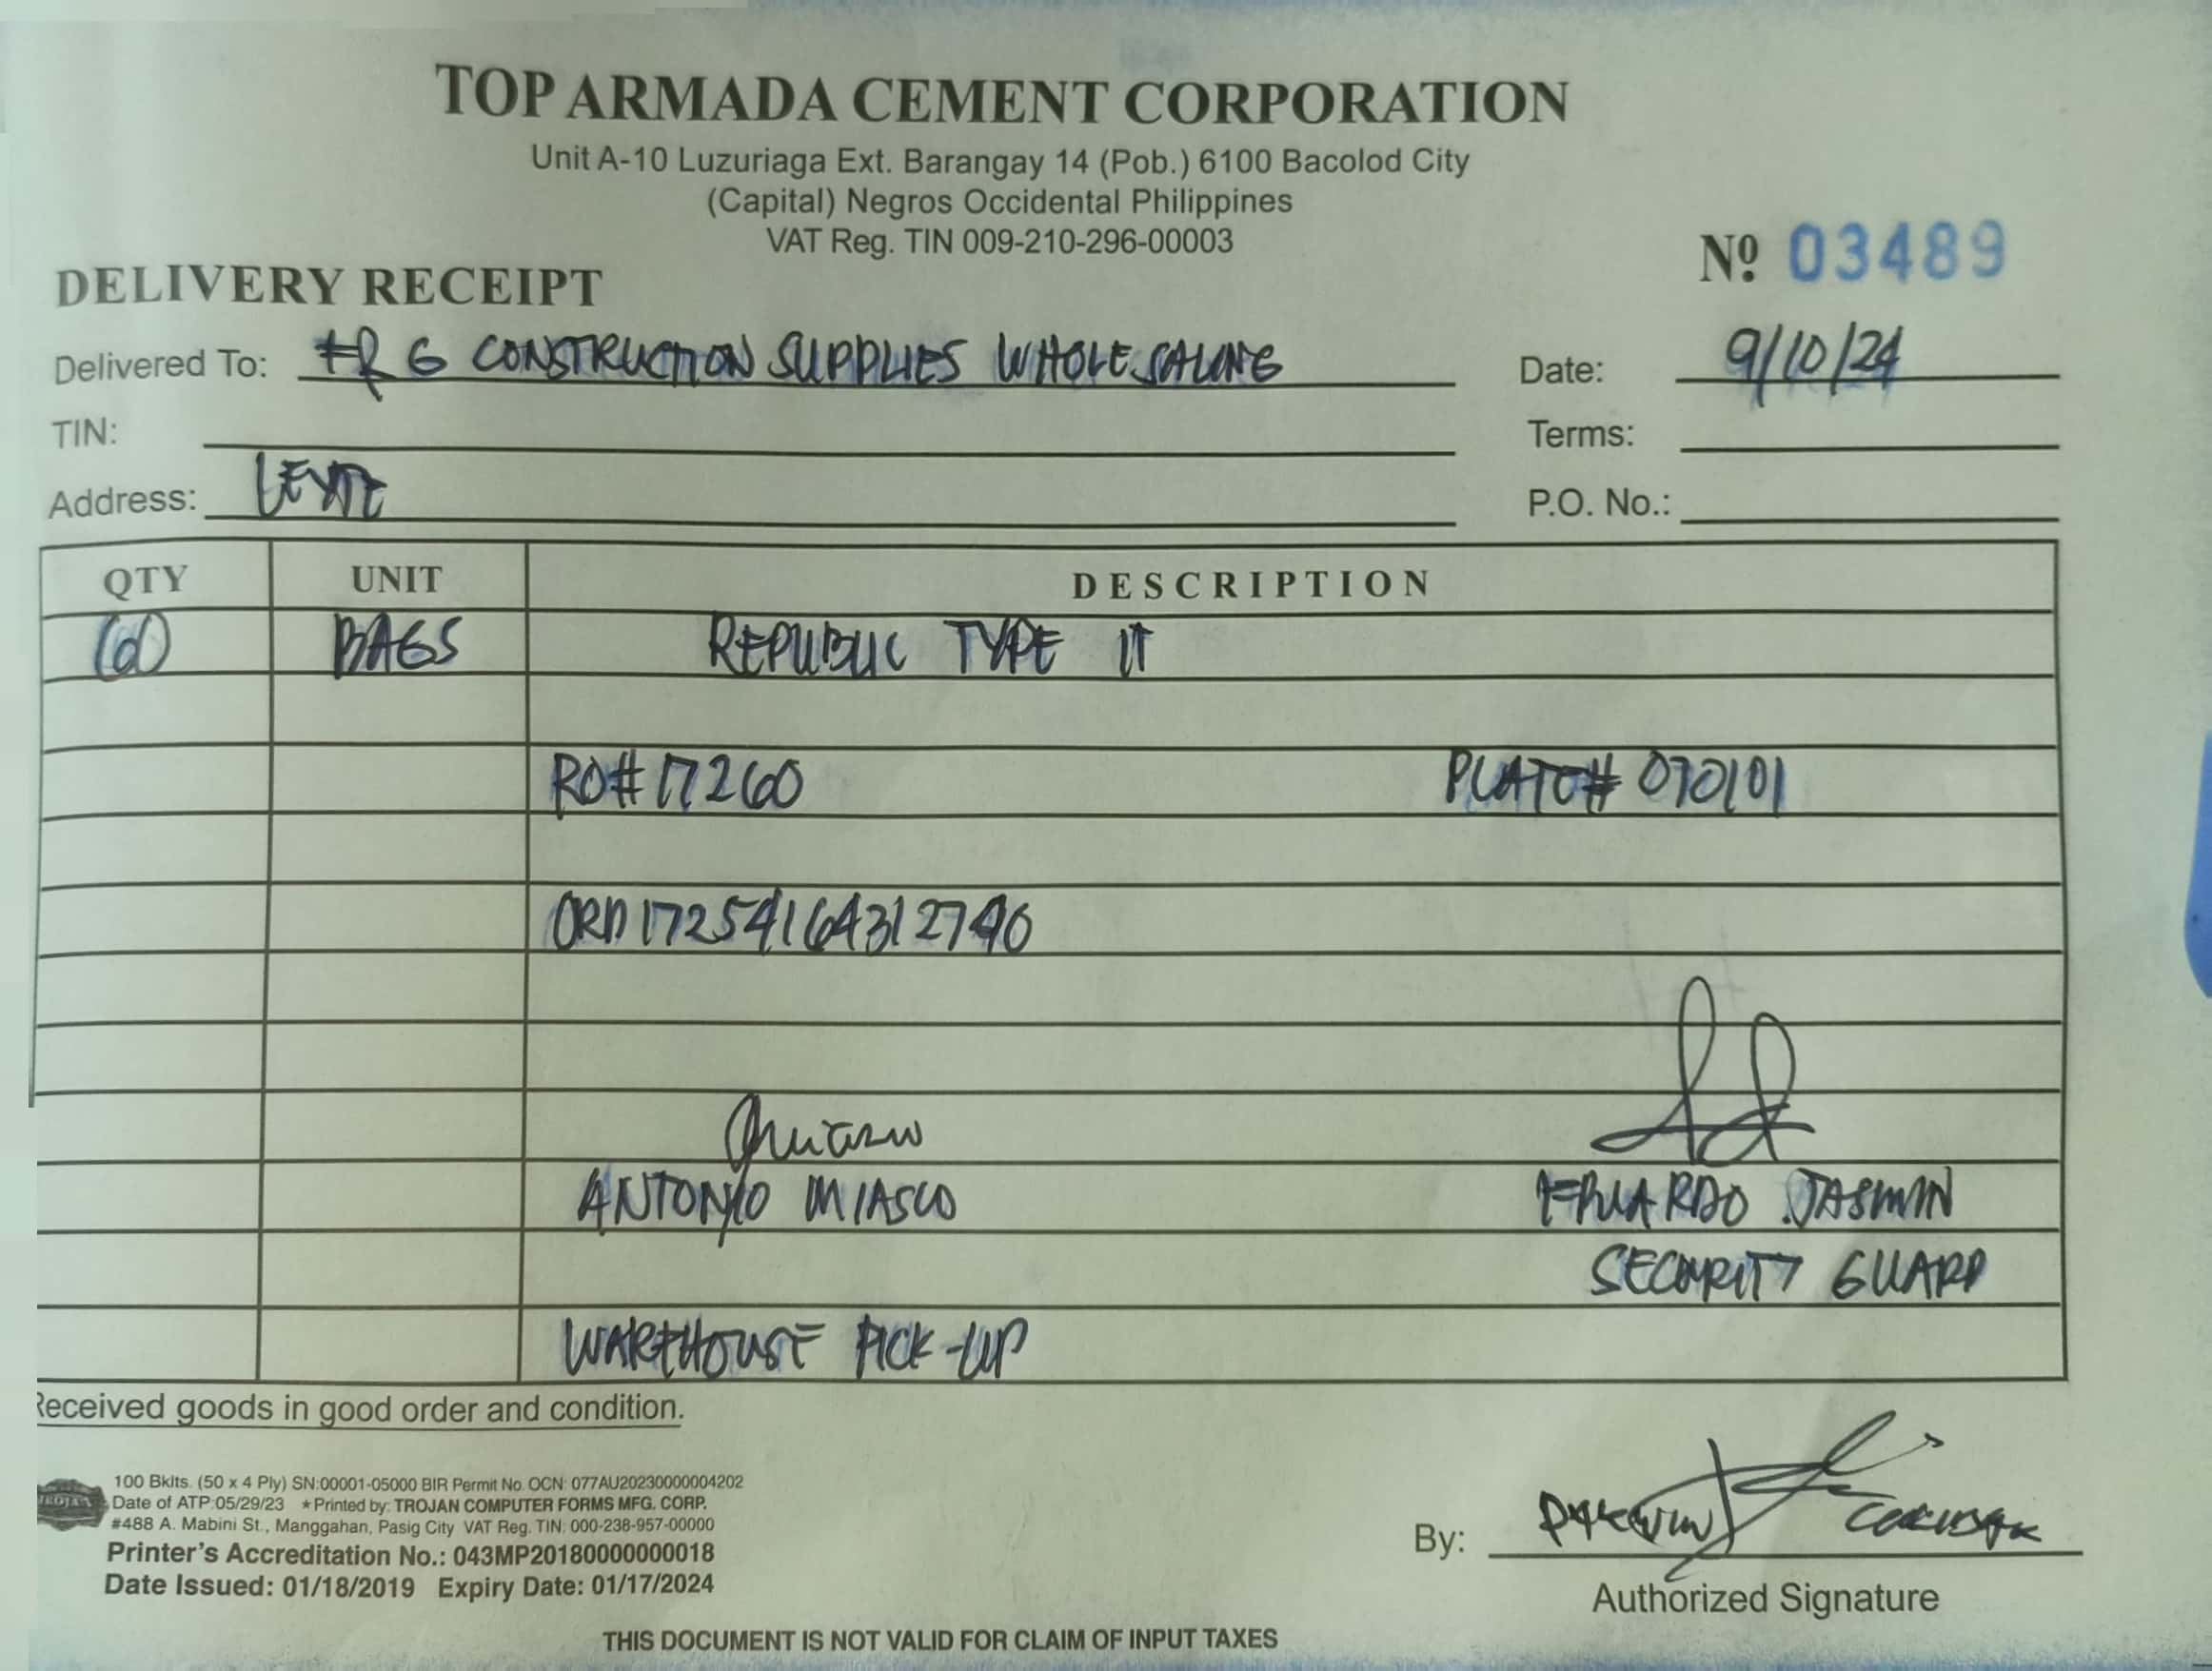 TOP ARMADA CEMENT CORPORATION
Unit A-10 Luzuriaga Ext. Barangay 14 (Pob.) 6100 Bacolod City
(Capital) Negros Occidental Philippines
VAT Reg. TIN 009-210-296-00003
Nº 03489
DELIVERY RECEIPT
Delivered To: FRG CONSTRUCTION SUPPLIES WHOLESALING Date: 9/10/24
TIN: Terms:
Address: LEYTE P.O. No.:
QTY UNIT DESCRIPTION
60 BAGS REPUBLIC TYPE 1T
RO# 17260 PLATE# 070101
ORD17254164312740
ANTONIO MIASCO JASMIN
SECURITY GUARD
WAREHOUSE PICK-UP
Received goods in good order and condition.
100 Bklts. (50 x 4 Ply) SN:00001-05000 BIR Permit No. OCN: 077AU20230000004202
Date of ATP:05/29/23 *Printed by: TROJAN COMPUTER FORMS MFG. CORP.
#488 A. Mabini St., Manggahan, Pasig City VAT Reg. TIN: 000-238-957-00000
Printer's Accreditation No.: 043MP20180000000018
Date Issued: 01/18/2019 Expiry Date: 01/17/2024
By:
Authorized Signature
THIS DOCUMENT IS NOT VALID FOR CLAIM OF INPUT TAXES